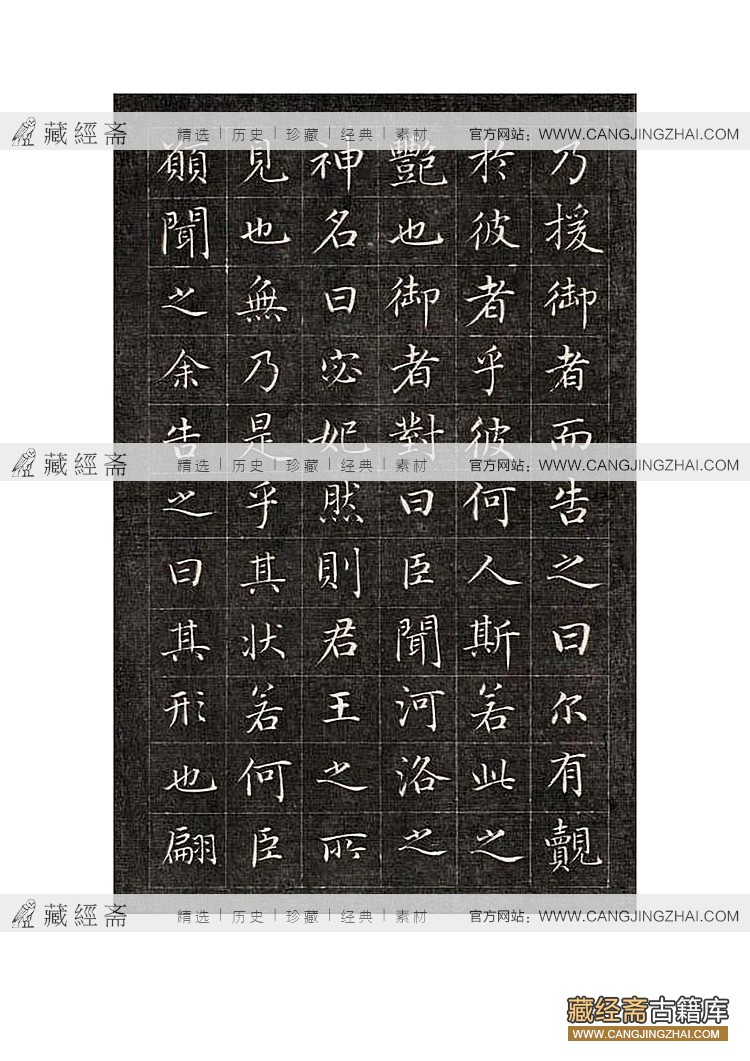 藏經斋 精选|历史|珍藏|经典|素材 官方网站：WWW.CANGJINGZHAI.COM
乃援御者而告之曰尔有觌
於彼者乎彼何人斯若此之
艷也御者對曰臣聞河洛之
神名曰宓妃然則君王之所
見也無乃是乎其状若何臣
願聞之余告之曰其形也翩
藏經斋 精选|历史|珍藏|经典|素材 官方网站：WWW.CANGJINGZHAI.COM
藏經斋 精选|历史|珍藏|经典|素材 官方网站：WWW.CANGJINGZHAI.COM
藏经斋古籍库
WWW.CANGJINGZHAI.COM